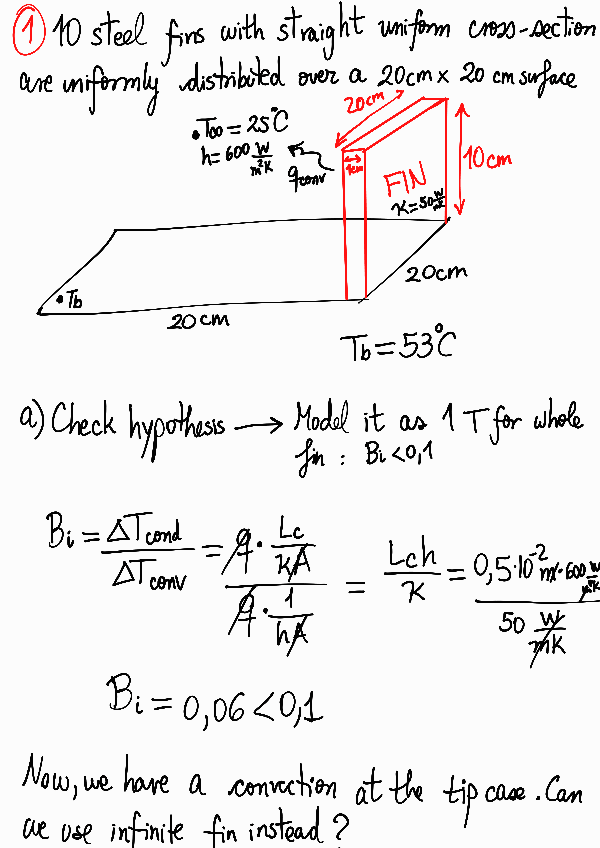 1 10 steel fins with straight uniform cross-section
are uniformly distributed over a 20cm x 20 cm surface
20cm
• T∞ = 25°C
h = 600 W/m²K
qconv
1cm
FIN
K = 50 W/mK
10cm
• Tb
20cm
20cm
Tb = 53°C
a) Check hypothesis → Model it as 1 T for whole
fin : Bi < 0,1
Bi = ΔTcond/ΔTconv = (q · Lc/kA)/(q · 1/hA) = Lch/K = (0,5·10⁻² m · 600 W/m²K)/(50 W/mK)
Bi = 0,06 < 0,1
Now, we have a convection at the tip case. Can
we use infinite fin instead?